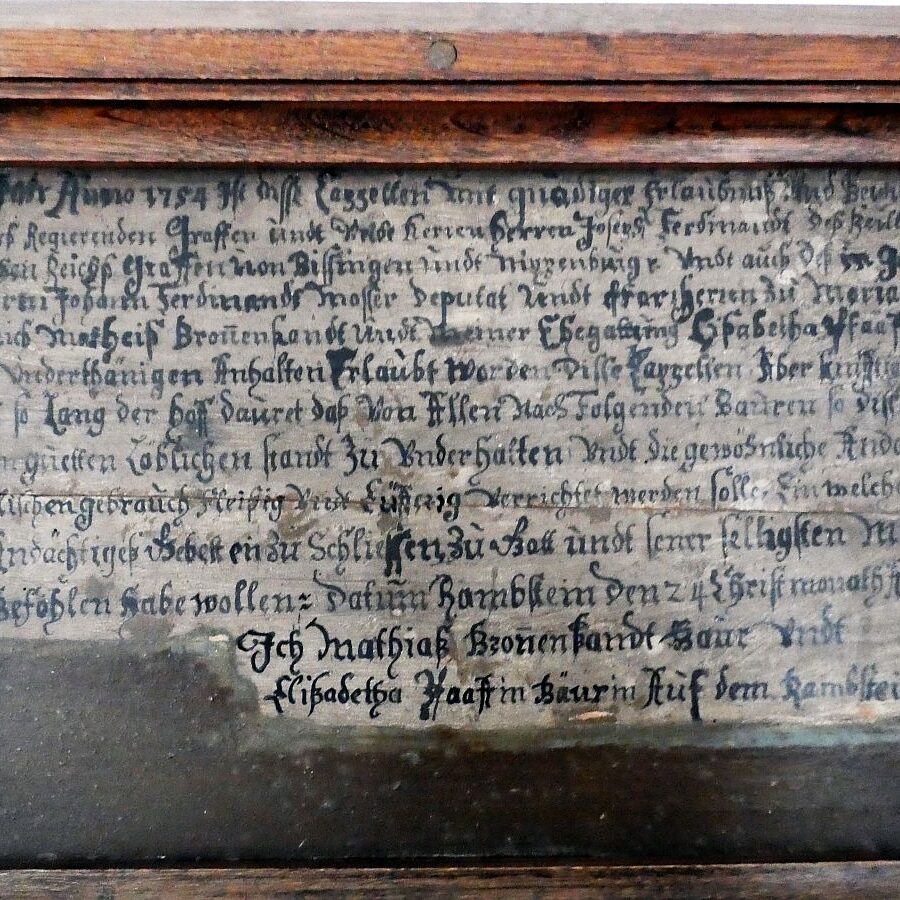 Anno 1754 Ist disse Cappellen mit gnädiger Erlaubnuß Und
Regierenden Graffen undt Herren Herren Joseph Ferdinandt deß
Reichs Graffen von Bissingen undt Nippenburg Undt auch deß in
Johann Ferdinandt Moser Deputat Undt freiherren zu Maria
Matheiß Bronnenkandt Undt Meiner Ehegattung Elisabetha Pfaaf
Underthänigen Anhalten Erlaubt worden Disse Cappellen Aber
so Lang der hoff dauret daß Von Allen Nach Folgenden Bauren so
guetten Löblichen standt Zu Underhalten Undt die gewöhnliche
gebrauch Fleißig Undt Eüfferig Verrichtet werden solle. Ein welche
Andächtiges Gebett ein zu Schliessen Zu Gott undt sener selligsten
Befohlen habe wollen= Datum Hambstein Den 24 Christmonath
Ich Mathiaß Bronnenkandt Baur Undt
Elißabetha Pfaaffin Bäurin Auf dem